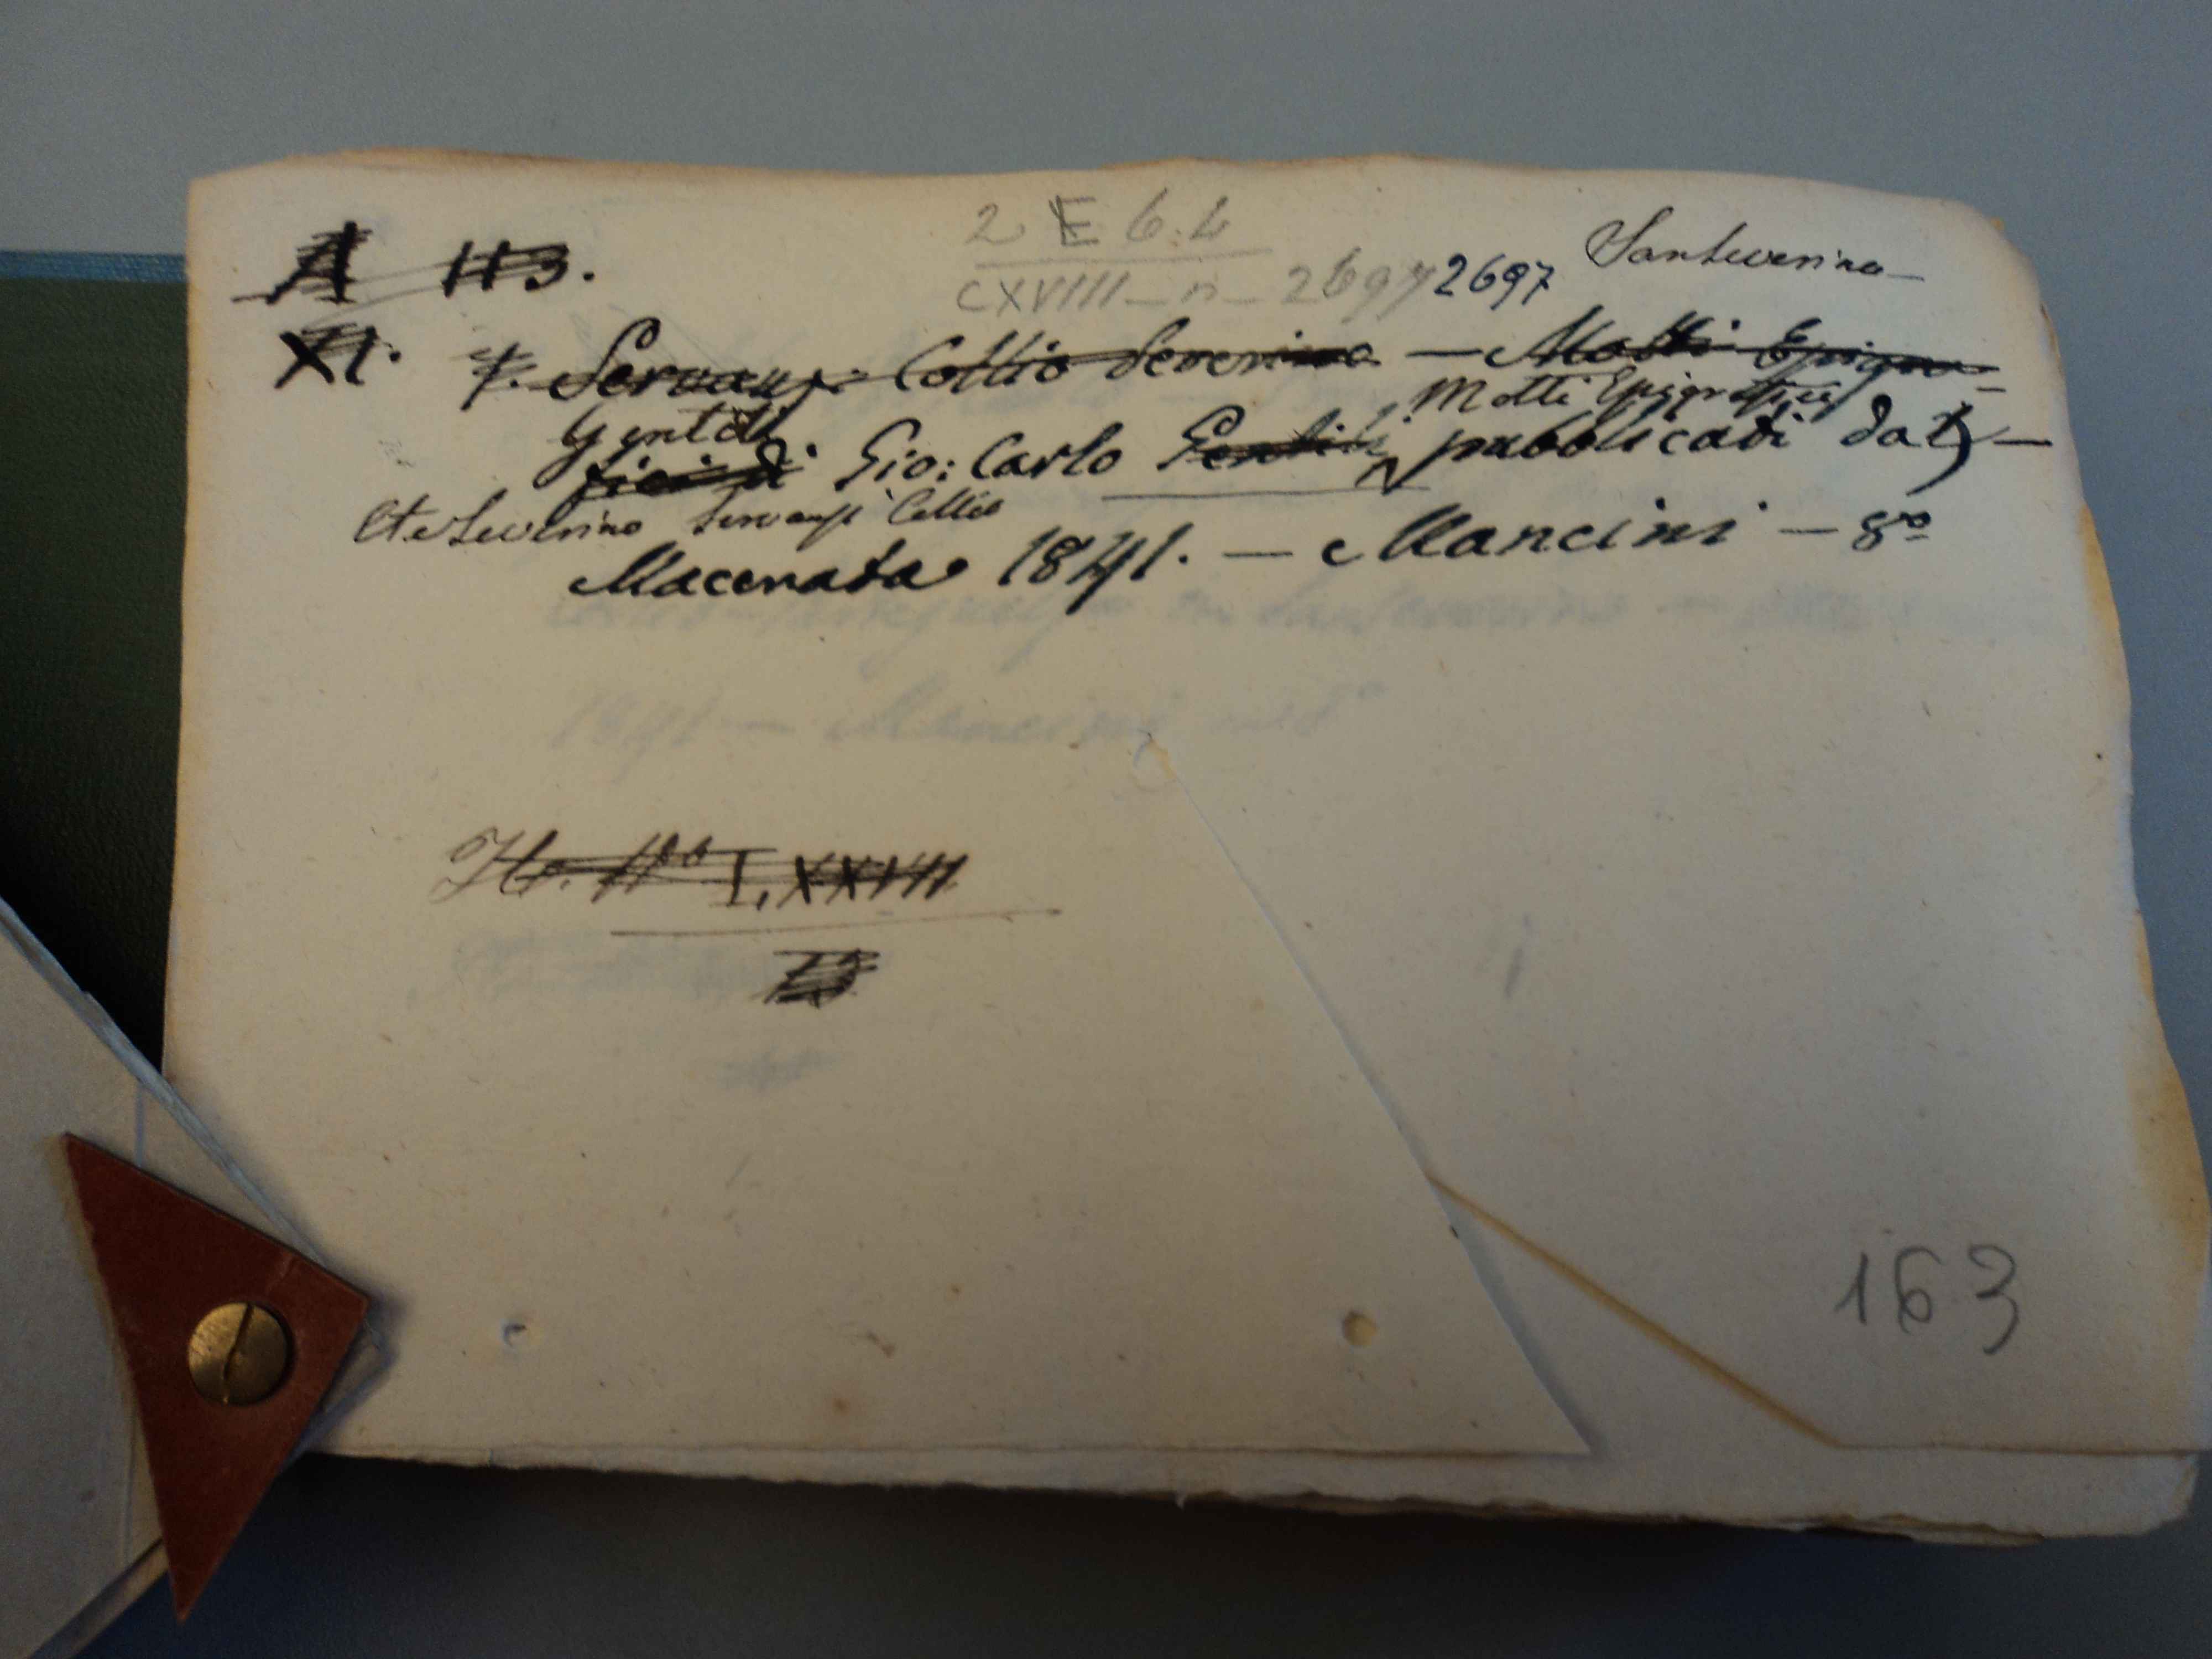 2 E 6.4
A 113.
CXVIII - n - 2697 2697 Sanseverino
XI. 7. Servanzi Collio Severino — Motti Epigra=
Gentili Motti Epigrafici
fici di Gio: Carlo Gentili pubblicati dal
Cte Severino Servanzi Collio
Macerata 1841. — Mancini — 8º
I, XXVIII
163